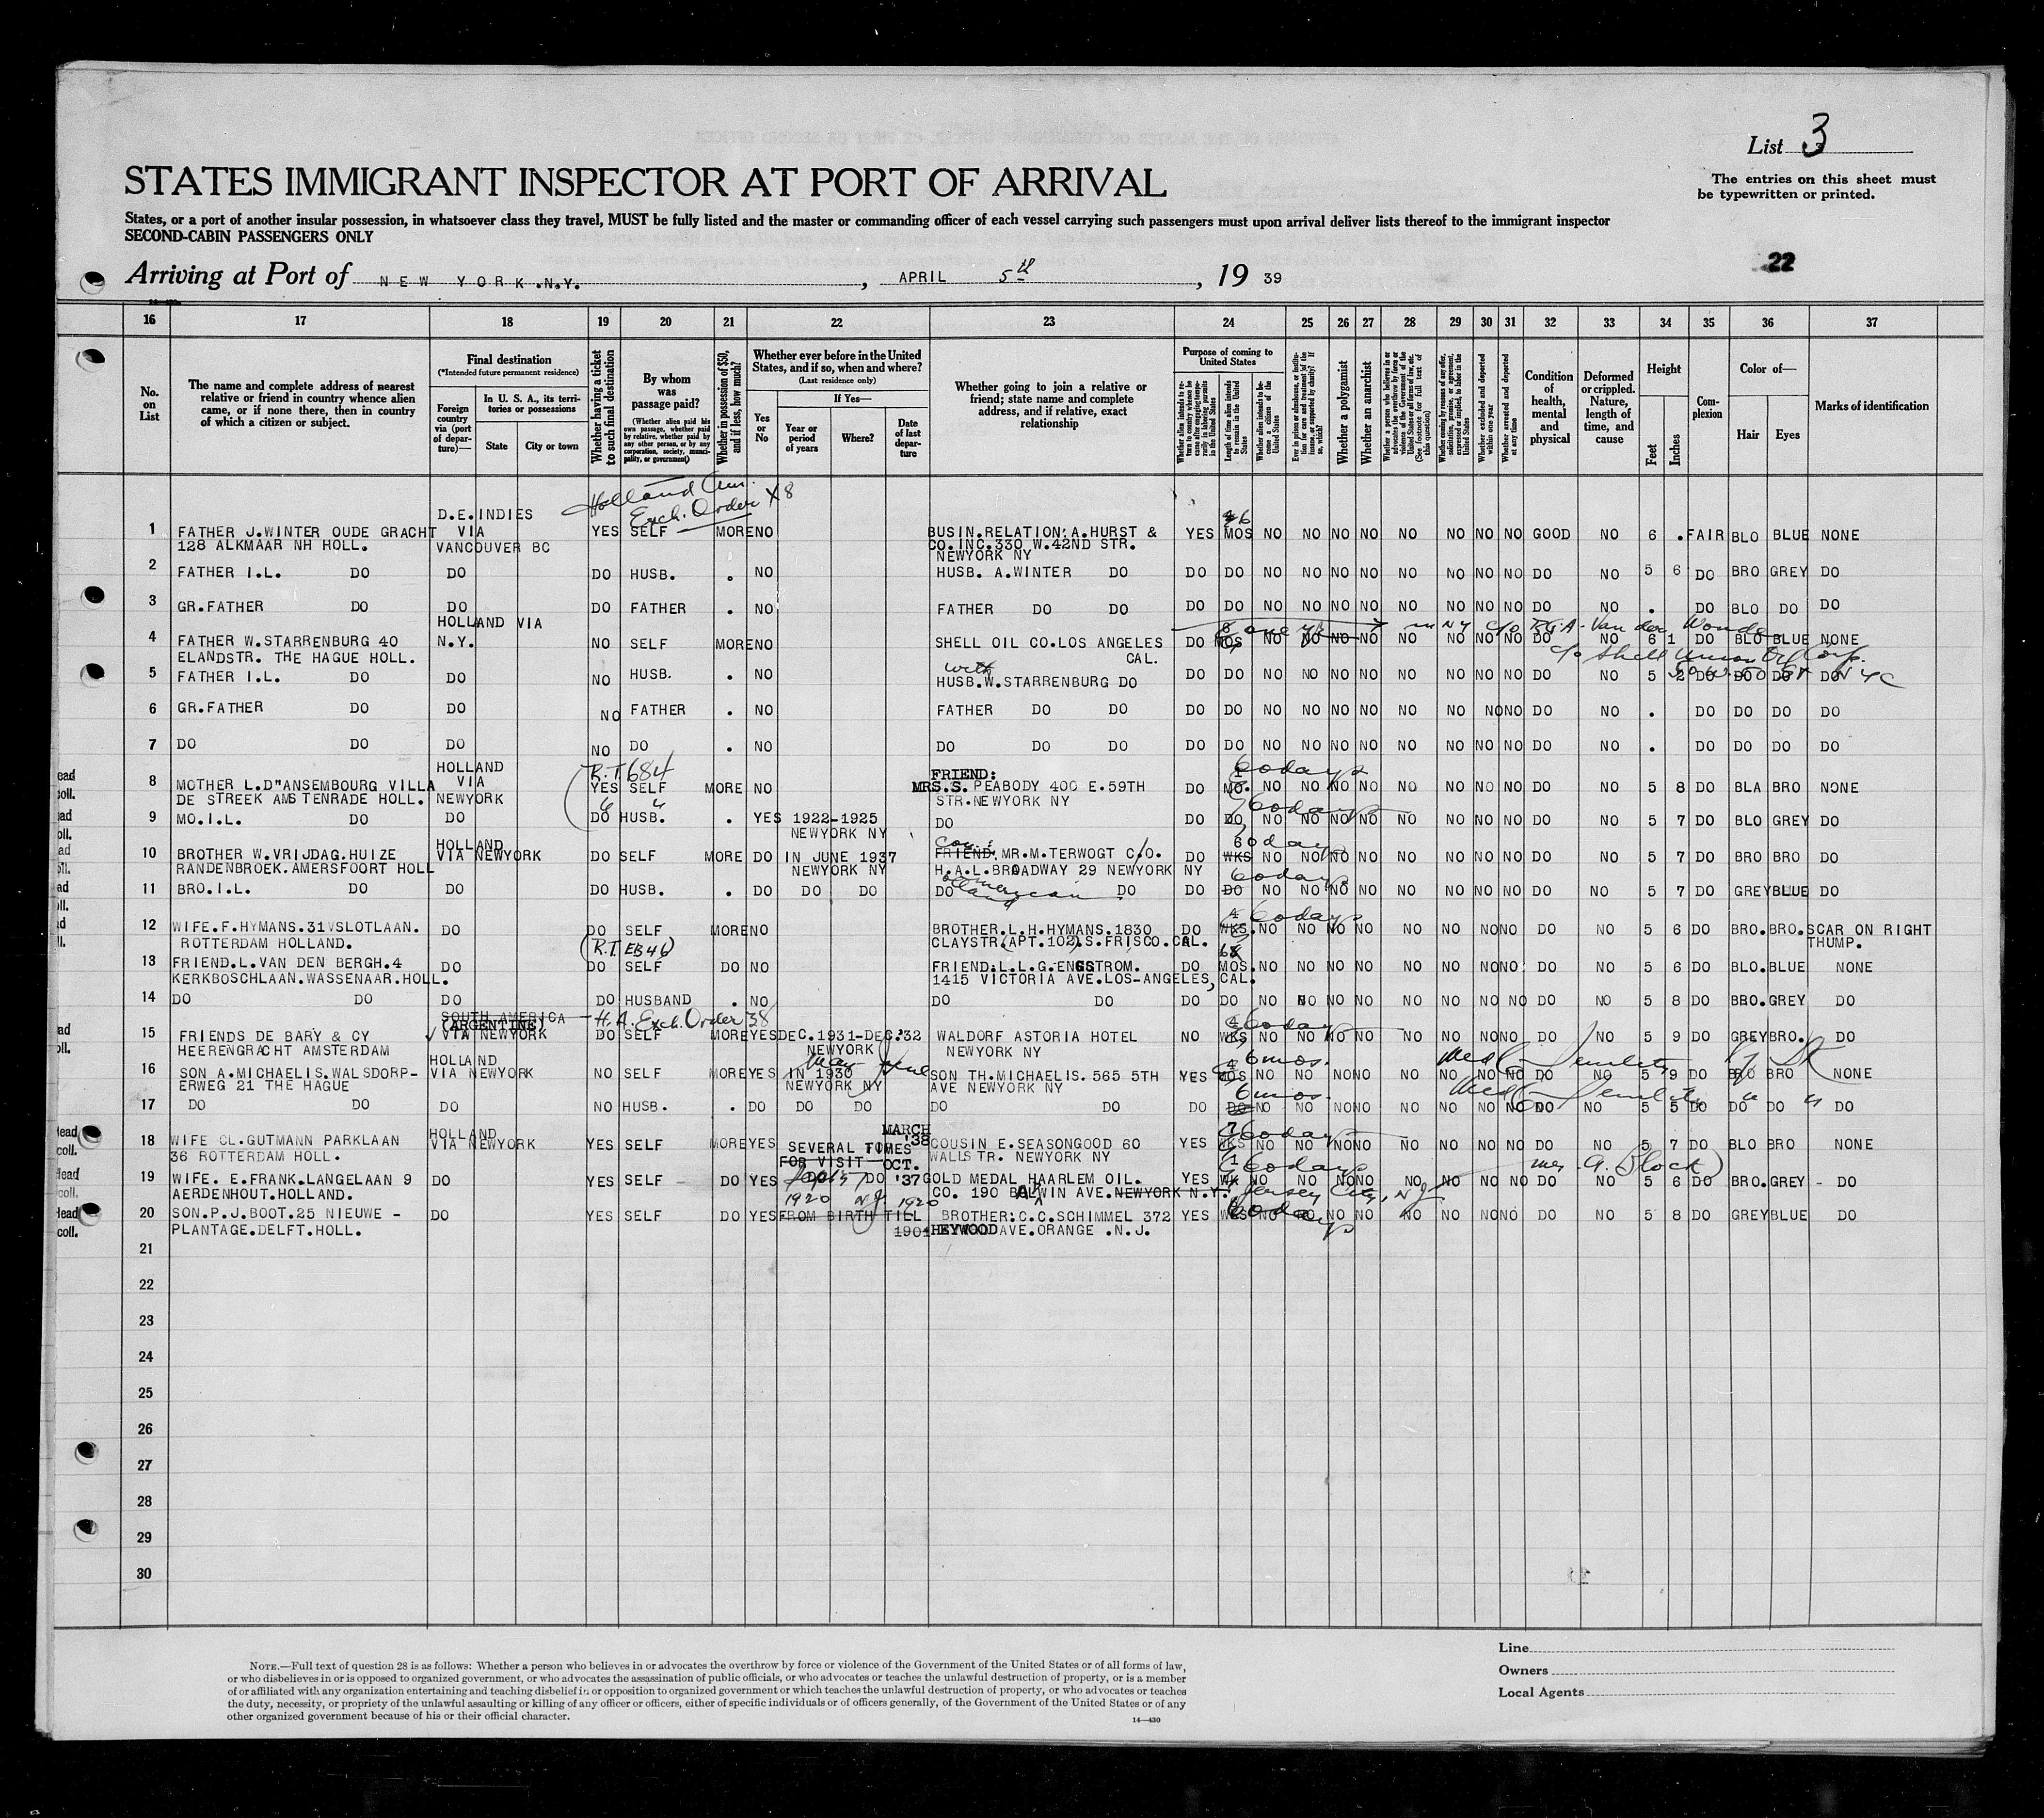 List 3
The entries on this sheet must
be typewritten or printed.
STATES IMMIGRANT INSPECTOR AT PORT OF ARRIVAL
States, or a port of another insular possession, in whatsoever class they travel, MUST be fully listed and the master or commanding officer of each vessel carrying such passengers must upon arrival deliver lists thereof to the immigrant inspector
SECOND-CABIN PASSENGERS ONLY
22
Arriving at Port of NEW YORK.N.Y. , APRIL 5th , 19 39
16 17 18 19 20 21 22 23 24 25 26 27 28 29 30 31 32 33 34 35 36 37
No. on List
The name and complete address of nearest relative or friend in country whence alien came, or if none there, then in country of which a citizen or subject.
Final destination
(*Intended future permanent residence)
Foreign country via (port of departure)—
In U. S. A., its territories or possessions
State City or town
Whether having a ticket to such final destination
By whom was passage paid?
(Whether alien paid his own passage, whether paid by relative, whether paid by any other person, or by any corporation, society, municipality, or government)
Whether in possession of $50, and if less, how much?
Whether ever before in the United States, and if so, when and where?
(Last residence only)
Yes or No
If Yes—
Year or period of years
Where?
Date of last departure
Whether going to join a relative or friend; state name and complete address, and if relative, exact relationship
Purpose of coming to United States
Length of time alien intends to remain in the United States
Whether alien intends to become a citizen of the United States
Whether a polygamist
Whether an anarchist
Whether excluded and deported within one year
Whether arrested and deported at any time
Condition of health, mental and physical
Deformed or crippled. Nature, length of time, and cause
Height
Feet Inches
Complexion
Color of—
Hair Eyes
Marks of identification
Holland Am. Exch. Order X8
D.E.INDIES
1 FATHER J.WINTER OUDE GRACHT VIA YES SELF MORE NO BUSIN.RELATION:A.HURST & YES MOS 6 NO NO NO NO NO NO NO NO GOOD NO 6 . FAIR BLO BLUE NONE
128 ALKMAAR NH HOLL. VANCOUVER BC CO.INC.330 W.42ND STR.
NEWYORK NY
2 FATHER I.L. DO DO DO HUSB. . NO HUSB. A.WINTER DO DO DO NO NO NO NO NO NO NO NO DO NO 5 6 DO BRO GREY DO
3 GR.FATHER DO DO DO FATHER . NO FATHER DO DO DO DO NO NO NO NO NO NO NO NO DO NO . DO BLO DO DO
HOLLAND VIA one yr in NY c/o
4 FATHER W.STARRENBURG 40 N.Y. NO SELF MORE NO SHELL OIL CO.LOS ANGELES DO MOS NO NO NO NO NO NO NO NO DO NO 6 1 DO BLO BLUE NONE
ELANDSTR. THE HAGUE HOLL. CAL. c/o Shell Union Oil Corp.
with
5 FATHER I.L. DO DO NO HUSB. . NO HUSB.W.STARRENBURG DO DO DO NO NO NO NO NO NO NO NO DO NO 5 2 DO DO DO DO NYC
6 GR.FATHER DO DO NO FATHER . NO FATHER DO DO DO DO NO NO NO NO NO NO NO NO DO NO . DO DO DO DO
7 DO DO DO NO DO . NO DO DO DO DO DO NO NO NO NO NO NO NO NO DO NO . DO DO DO DO
HOLLAND R.T.684 FRIEND: 60 days
8 MOTHER L.D"ANSEMBOURG VILLA VIA YES SELF MORE NO MRS.S. PEABODY 400 E.59TH DO MO. NO NO NO NO NO NO NO NO DO NO 5 8 DO BLA BRO NONE
DE STREEK AMSTENRADE HOLL. NEWYORK STR.NEWYORK NY
9 MO.I.L. DO DO DO HUSB. . YES 1922-1925 DO DO DO 60 days NO NO NO NO NO NO NO NO DO NO 5 7 DO BLO GREY DO
NEWYORK NY
HOLLAND 60 days
10 BROTHER W.VRIJDAG.HUIZE VIA NEWYORK DO SELF MORE DO IN JUNE 1937 FRIEND. MR.M.TERWOGT C/O. DO WKS NO NO NO NO NO NO NO NO DO NO 5 7 DO BRO BRO DO
RANDENBROEK.AMERSFOORT HOLL NEWYORK NY H.A.L.BROADWAY 29 NEWYORK NY
11 BRO.I.L. DO DO DO HUSB. . DO DO DO DO DO DO DO 60 days NO NO NO NO NO NO NO NO DO NO 5 7 DO GREY BLUE DO
12 WIFE.F.HYMANS.31VSLOTLAAN. DO DO SELF MORE NO BROTHER.L.H.HYMANS.1830 DO WKS. 60 days NO NO NO NO NO NO NO NO DO NO 5 6 DO BRO. BRO. SCAR ON RIGHT
ROTTERDAM HOLLAND. (R.T. EB46) CLAYSTR.(APT.102).S.FRISCO.CAL. THUMP.
13 FRIEND.L.VAN DEN BERGH.4 DO DO SELF DO NO FRIEND:L.L.G.ENGSTROM. DO MOS. NO NO NO NO NO NO NO NO DO NO 5 6 DO BLO. BLUE NONE
KERKBOSCHLAAN.WASSENAAR.HOLL. 1415 VICTORIA AVE.LOS-ANGELES, CAL.
14 DO DO DO DO HUSBAND . NO DO DO DO DO NO NO NO NO NO NO NO NO DO NO 5 8 DO BRO. GREY DO
SOUTH AMERICA H.A. Exch. Order 38
(ARGENTINE)
15 FRIENDS DE BARY & CY VIA NEWYORK DO SELF MORE YES DEC.1931-DEC.'32 WALDORF ASTORIA HOTEL NO WKS 60 days NO NO NO NO NO NO NO NO DO NO 5 9 DO GREY BRO. DO
HEERENGRACHT AMSTERDAM NEWYORK NEWYORK NY
HOLLAND May 6 mos.
16 SON A.MICHAELIS.WALSDORP- VIA NEWYORK NO SELF MORE YES IN 1936 SON TH.MICHAELIS. 565 5TH YES MOS NO NO NO NO NO NO NO NO DO NO 5 9 DO BRO BRO NONE
ERWEG 21 THE HAGUE NEWYORK NY AVE NEWYORK NY
17 DO DO DO NO HUSB. . DO DO DO DO DO DO DO 6 mos. NO NO NO NO NO NO NO NO DO NO 5 5 DO DO DO DO
HOLLAND MARCH '38
18 WIFE CL.GUTMANN PARKLAAN VIA NEWYORK YES SELF MORE YES SEVERAL TIMES COUSIN E.SEASONGOOD 60 YES WKS 60 days NO NO NO NO NO NO NO NO DO NO 5 7 DO BLO BRO NONE
36 ROTTERDAM HOLL. FOR VISIT OCT. WALLSTR. NEWYORK NY
19 WIFE. E.FRANK.LANGELAAN 9 DO YES SELF DO YES DO DO '37 GOLD MEDAL HAARLEM OIL. YES WK 60 days NO NO NO NO NO NO NO NO DO NO 5 6 DO BRO. GREY DO
AERDENHOUT.HOLLAND. 1920 NJ 1920 CO. 190 BALWIN AVE.NEWYORK N.Y. Jersey City, NJ
20 SON.P.J.BOOT.25 NIEUWE - DO YES SELF DO YES FROM BIRTH TILL BROTHER:C.C.SCHIMMEL 372 YES WKS 60 days NO NO NO NO NO NO NO NO DO NO 5 8 DO GREY BLUE DO
PLANTAGE.DELFT.HOLL. 1901 HEYWOOD AVE.ORANGE .N.J.
21
22
23
24
25
26
27
28
29
30
NOTE.—Full text of question 28 is as follows: Whether a person who believes in or advocates the overthrow by force or violence of the Government of the United States or of all forms of law,
or who disbelieves in or is opposed to organized government, or who advocates the assassination of public officials, or who advocates or teaches the unlawful destruction of property, or is a member
of or affiliated with any organization entertaining and teaching disbelief in or opposition to organized government or which teaches the unlawful destruction of property, or who advocates or teaches
the duty, necessity, or propriety of the unlawful assaulting or killing of any officer or officers, either of specific individuals or of officers generally, of the Government of the United States or of any
other organized government because of his or their official character.
14—430
Line
Owners
Local Agents